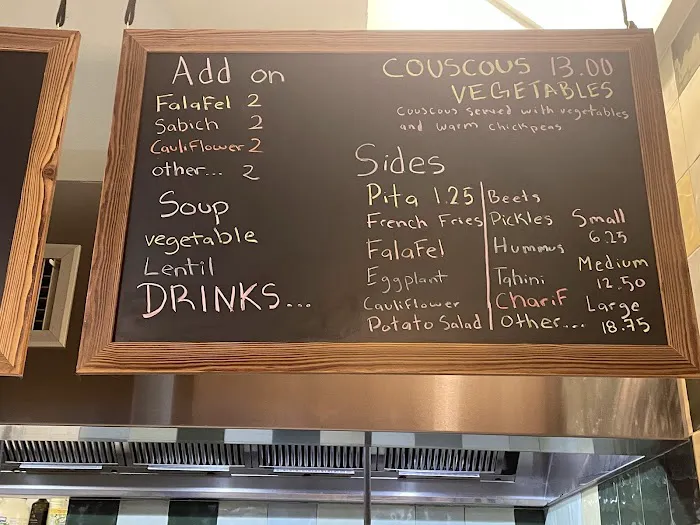 Add on
Falafel 2
Sabich 2
Cauliflower 2
other... 2
Soup
vegetable
Lentil
DRINKS...
COUSCOUS 13.00
VEGETABLES
couscous served with vegetables
and warm chickpeas
Sides
Pita 1.25
French Fries
Falafel
Eggplant
Cauliflower
Potato Salad
Beets
Pickles
Hummus
Tahini
Charif
Other...
Small
6.25
Medium
12.50
Large
18.75